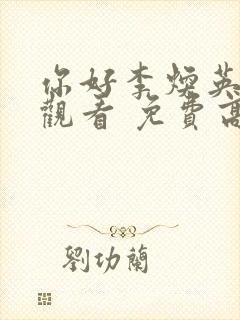 你好李焕英
觀看 免費高
劉功蘭